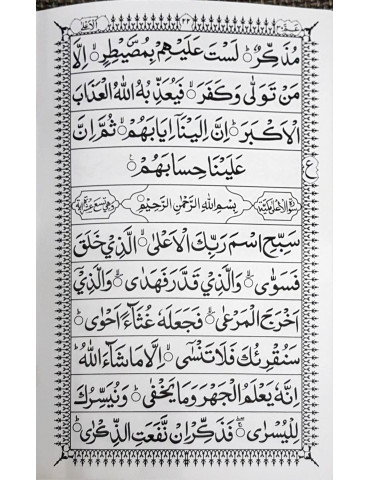 الاعلٰى ٢٢ عم ٣٠
مُذَكِّرٌ ۙ لَسْتَ عَلَيْهِمْ بِمُصَۜيْطِرٍ ۙ اِلَّا
مَنْ تَوَلّٰى وَكَفَرَ ۙ فَيُعَذِّبُهُ اللّٰهُ الْعَذَابَ
الْاَكْبَرَ ؕ اِنَّ اِلَيْنَاۤ اِيَابَهُمْ ۙ ثُمَّ اِنَّ
عَلَيْنَا حِسَابَهُمْ ۠
ع
سورة الاعلى مكية بِسْمِ اللّٰهِ الرَّحْمٰنِ الرَّحِيْمِ وهي تسع عشرة اٰية
سَبِّحِ اسْمَ رَبِّكَ الْاَعْلَى ۙ الَّذِيْ خَلَقَ
فَسَوّٰى ۙ وَالَّذِيْ قَدَّرَ فَهَدٰى ۙ وَالَّذِيْۤ
اَخْرَجَ الْمَرْعٰى ۙ فَجَعَلَهٗ غُثَآءً اَحْوٰى ؕ
سَنُقْرِئُكَ فَلَا تَنْسٰۤى ۙ اِلَّا مَا شَآءَ اللّٰهُ ؕ
اِنَّهٗ يَعْلَمُ الْجَهْرَ وَمَا يَخْفٰى ؕ وَنُيَسِّرُكَ
لِلْيُسْرٰى ۚ فَذَكِّرْ اِنْ نَّفَعَتِ الذِّكْرٰى ؕ